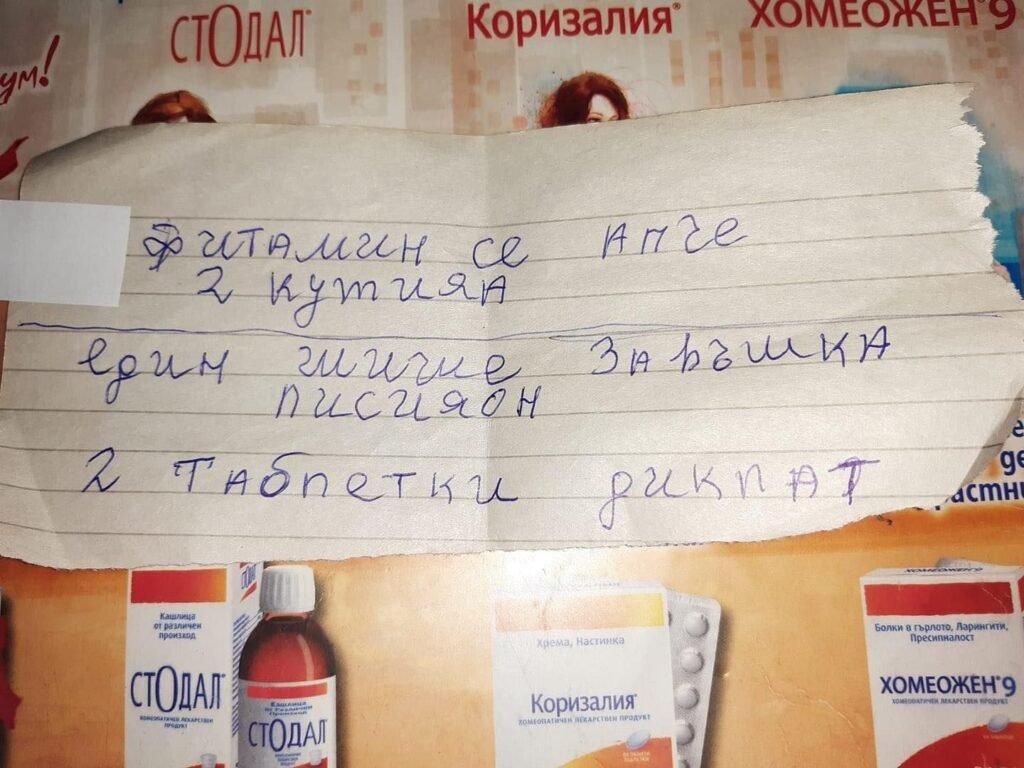 СТОДАЛ®
Коризалия®
ХОМЕОЖЕН®9
ум!
фитамин се апче
2 кутияа
един шише Заръшка
писияон
2 Табпетки дикпат
Кашлица
от различен
произход
СТОДАЛ®
ХОМЕОПАТИЧЕН ЛЕКАРСТВЕН
ПРОДУКТ
Кашлица
от Различен
Произход
СТОДАЛ
Хрема, Настинка
Коризалия®
ХОМЕОПАТИЧЕН ЛЕКАРСТВЕН ПРОДУКТ
ХОМЕОЖЕН 9
Болки в гърлото, Ларингити,
Пресипналост
ХОМЕОЖЕН®9
ХОМЕОПАТИЧЕН ЛЕКАРСТВЕН ПРОДУКТ